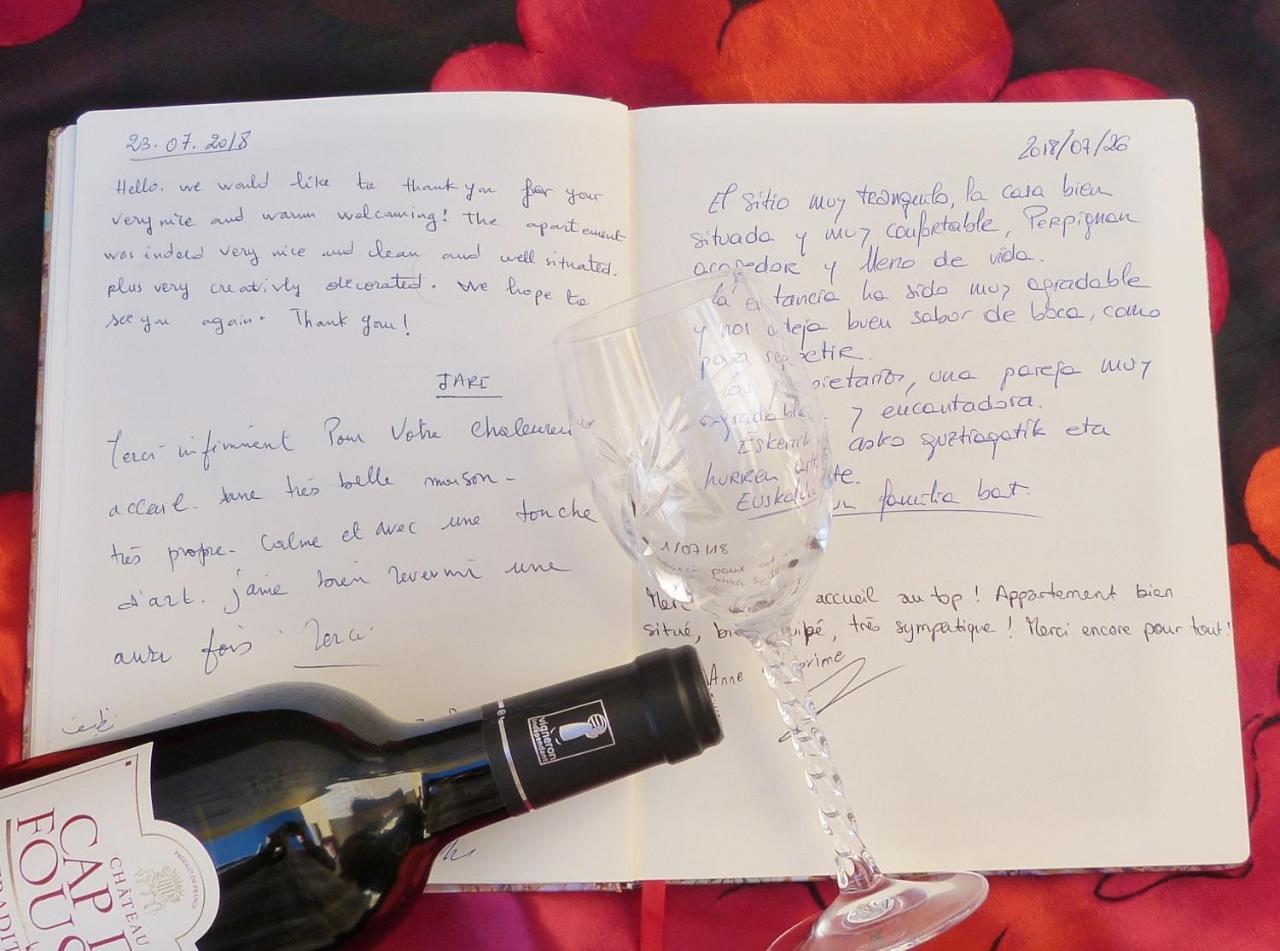 23.07.2018
Hello. we would like to thank you for your
very nice and warm welcoming! the apartement
was indeed very nice and clean and well situated.
plus very creativly decorated. We hope to
see you again. Thank you!
JARI
Merci infiniment Pour Votre chaleureux
accueil. une très belle maison -
très propre. Calme et avec une touche
d'art. j'aime bien revenir une
autre fois. Merci
2018/07/26
El sitio muy tranquilo, la casa bien
situada y muy confortable, Perpignan
acogedor y lleno de vida.
La estancia ha sido muy agradable
y nos deja buen sabor de boca, como
para repetir.
Los propietarios, una pareja muy
agradable y encantadora.
Eskerrik asko guztiagatik eta
hurren arte.
familia bat.
1/07/18
pour
Merci accueil au top ! Appartement bien
situé, bien équipé, très sympatique ! Merci encore pour tout !
Anne
vigneron
indépendant
CHÂTEAU
CAP
FOUS
TRADIT
PRODUCT OF FRANCE